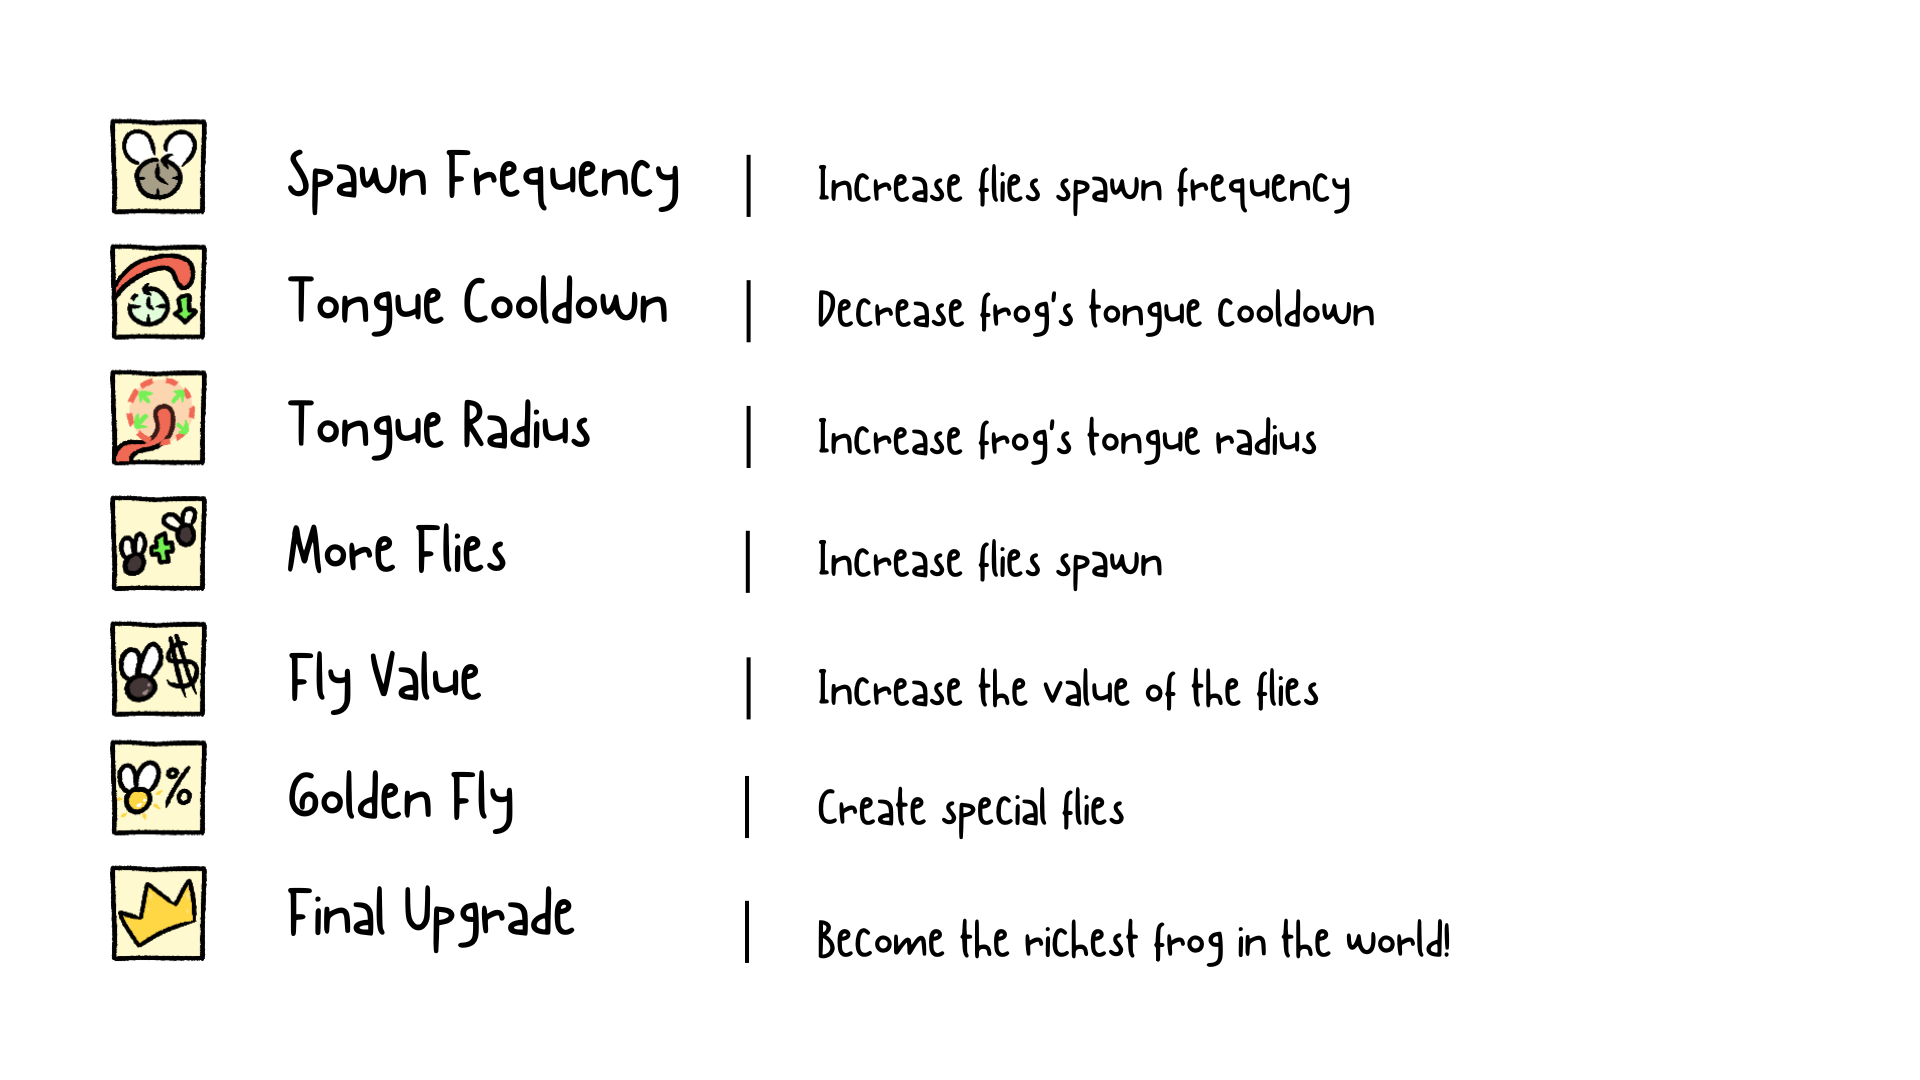 Spawn Frequency | Increase flies spawn frequency
Tongue Cooldown | Decrease frog's tongue cooldown
Tongue Radius | Increase frog's tongue radius
More Flies | Increase flies spawn
$
Fly Value | Increase the value of the flies
%
Golden Fly | Create special flies
Final Upgrade | Become the richest frog in the world!